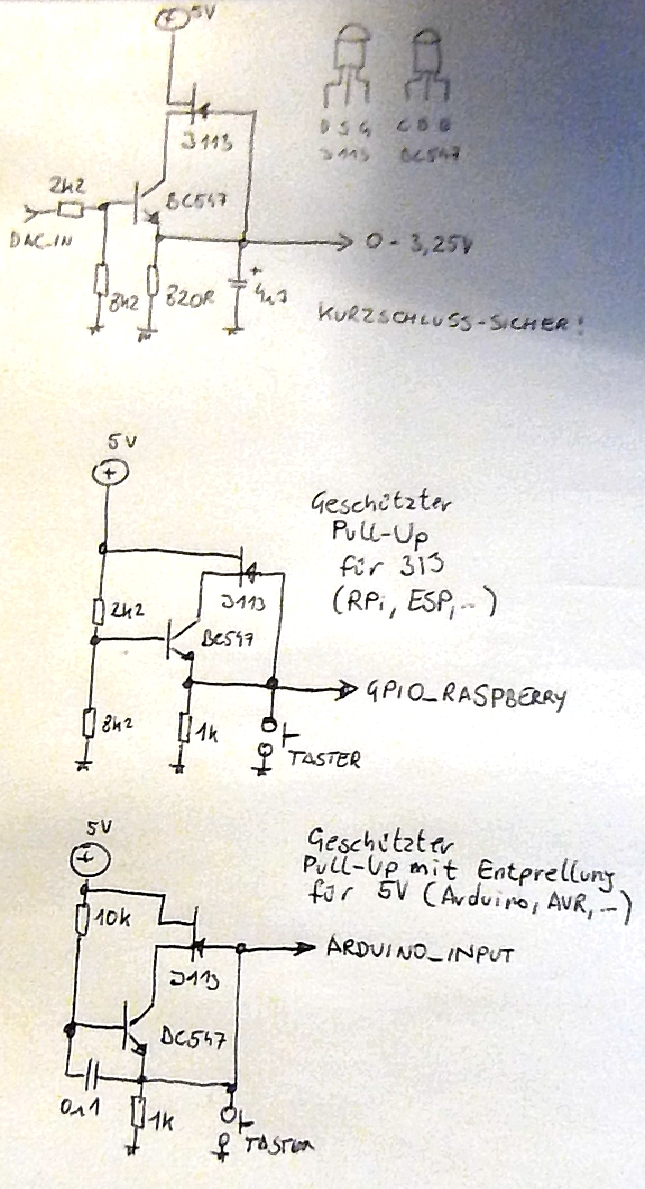 5V
J113
D S G
C B E
J113
BC547
2k2
BC547
DAC-IN
0 - 3,25V
8k2
820R
+
4n7
KURZSCHLUSS-SICHER!
5V
+
Geschützter
Pull-Up
für 3V3
(RPi, ESP,...)
J113
2k2
BC547
GPIO_RASPBERRY
8k2
1k
TASTER
5V
+
Geschützter
Pull-Up mit Entprellung
für 5V (Arduino, AVR,...)
10k
ARDUINO_INPUT
J113
BC547
1k
TASTER